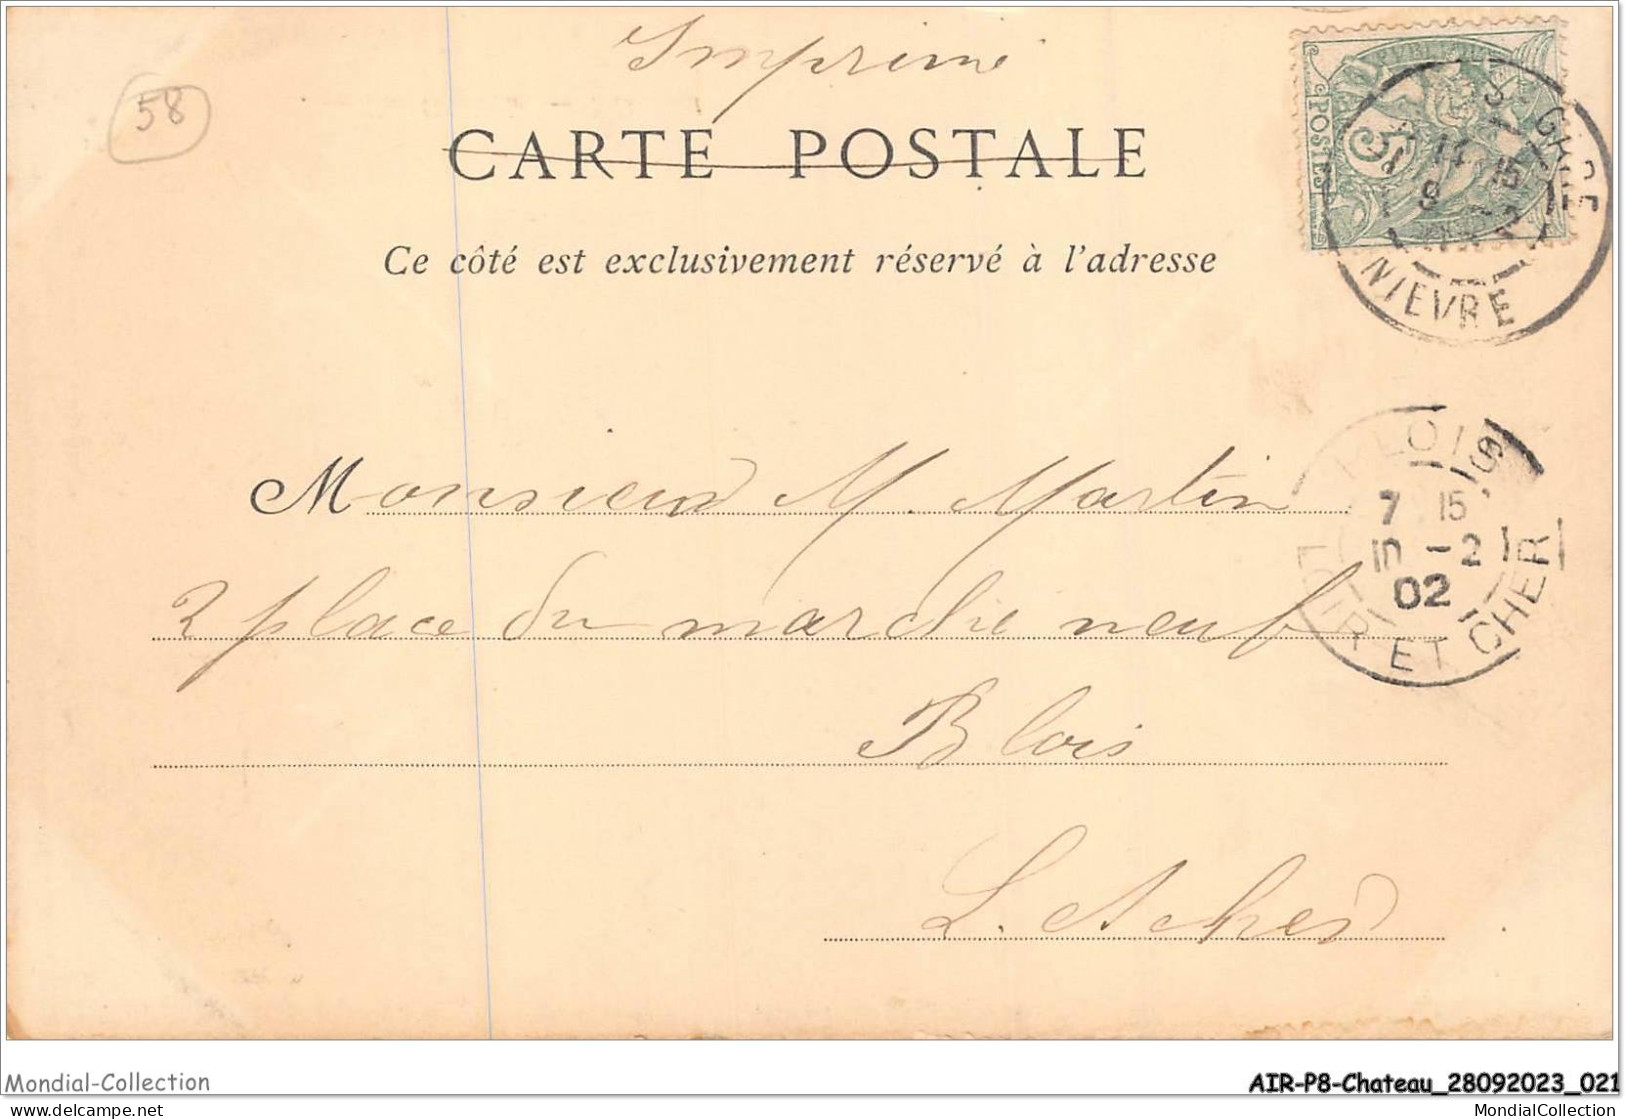 Imprimé
58
CARTE POSTALE
POSTES
5
Ce côté est exclusivement réservé à l'adresse
NIEVRE
Monsieur M. Martin
BLOIS
7 15
10 - 2
02
LOIR ET CHER
2 place du marché neuf
Blois
L. et Cher
Mondial-Collection
AIR-P8-Chateau_28092023_021
www.delcampe.net
MondialCollection